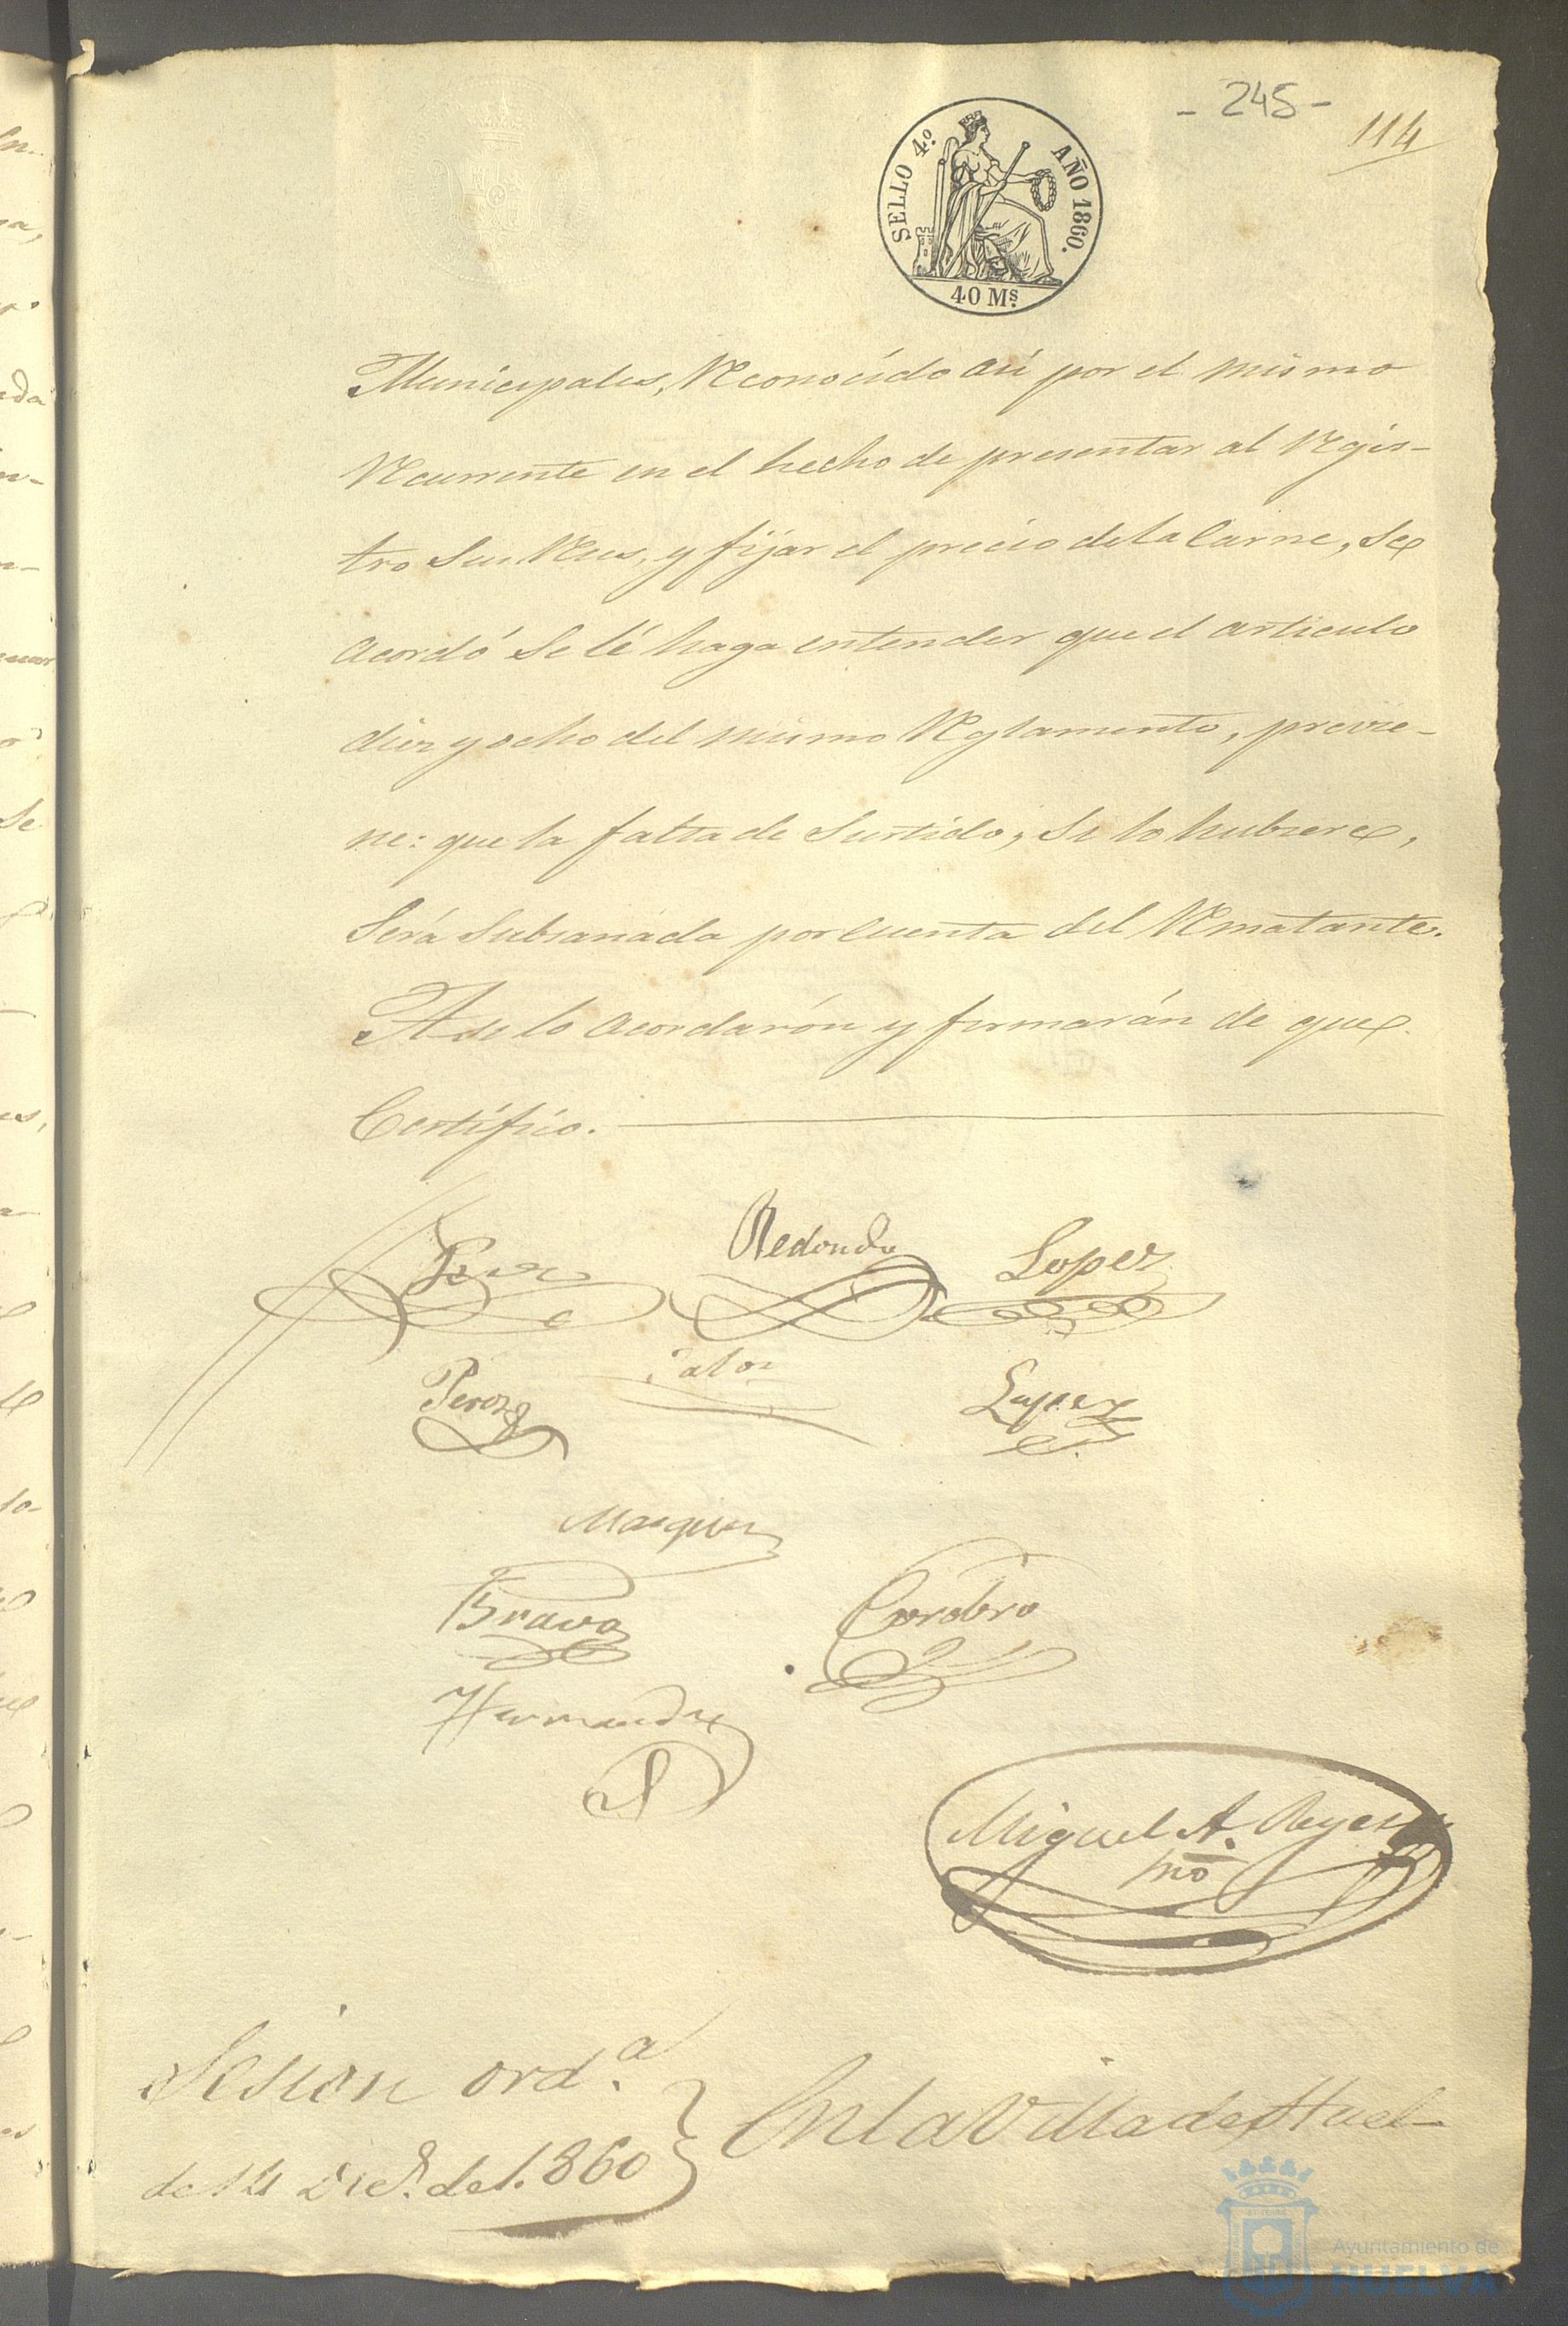 - 245 -
114
SELLO 4.º AÑO 1860.
40 Ms.
Municipales, Reconocido así por el mismo
Recurrente en el hecho de presentar al Regis-
tro Sus Reses, y fijar el precio de la Carne, Se
acordó Se lé haga entender que el articulo
diez y ocho del mismo Reglamento, previe-
ne: que la falta de Surtido, Si lo hubiere,
Será Subsanada por Cuenta del Rematante.
Asi lo acordarón y firmarán de que
Certifico.
Redondo
Lopez
Perez
Lopez
Marquez
Bravo
Cordero
Hernandez
Miguel A. Reyes
Srio
Sesion ord.ª
de 14 Dic.e de 1.860
En la Villa de Huel-
Ayuntamiento de
HUELVA